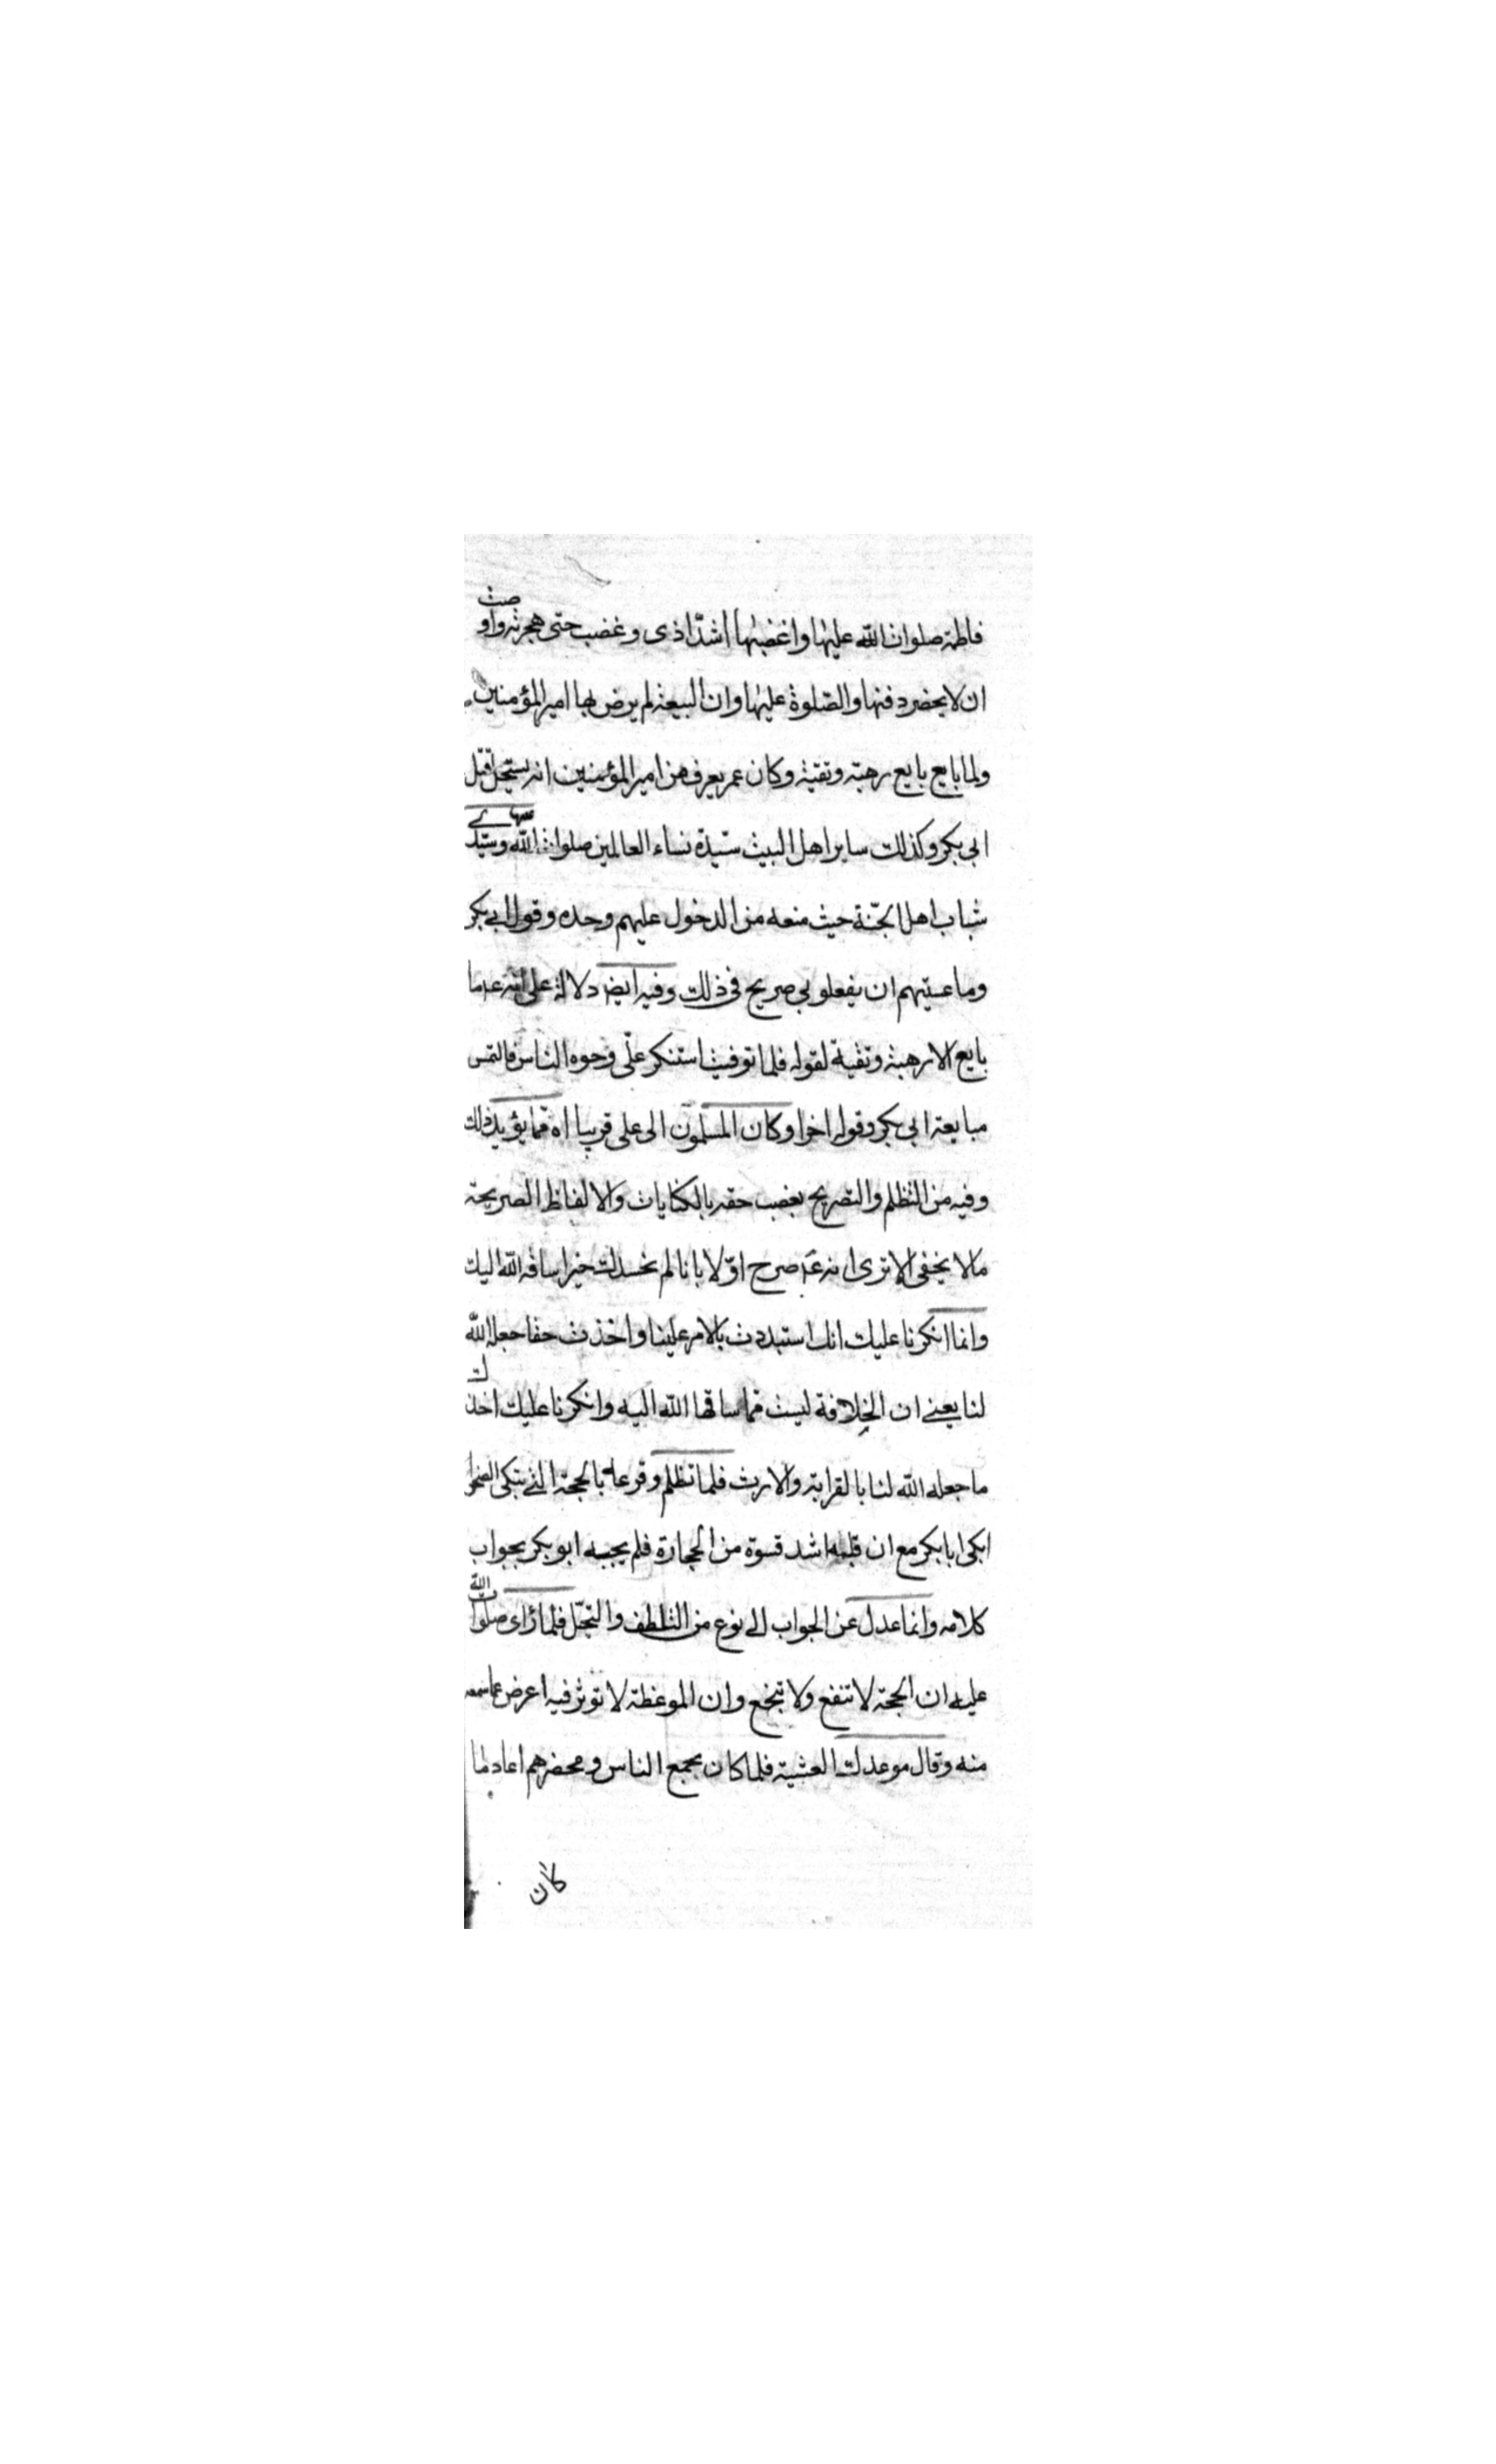 فاطمة صلوات الله عليها واغضبها اشدّ اذى وغضب حتى هجرته واوصت
ان لا يحضر دفنها والصّلوة عليها وان البيعة لم يرض بها امير المؤمنين
ولما بايع بايع رهبة وتقية وكان عمر يعرف من امير المؤمنين انه يستحل قتل
ابى بكر وكذلك ساير اهل البيت سيّدة نساء العالمين صلوات الله عليها وسيّدى
شباب اهل الجنّة حيث منعه من الدخول عليهم وحده وقول ابى بكر
وما عسيتهم ان يفعلو بى صريح فى ذلك وفيه ايض دلالة على انه ع ما
بايع الا رهبة وتقية لقوله فلما توفيت استنكر علّى وجوه الناس فالتمس
مبايعة ابى بكر وقوله اخرا وكان المسلمون الى على قريبا اه مما يؤيد ذلك
وفيه من التظلم والتصريح بغصب حقه بالكنايات والالفاظ الصريحة
مالا يخفى الا ترى انه ع صرح اوّلا بانا لم نحسدك خيرا ساقه الله اليك
وانما انكرنا عليك انك استبددت بالامر علينا واخذت حقا جعله الله
لنا يعنى ان الخلافة ليست مما ساقها الله اليه وانكرنا عليك اخذك
ما جعله الله لنا بالقرابة والارث فلما تظلم وقرعه بالحجة التى تبكى الصخر
ابكى ابا بكر مع ان قلبه اشد قسوة من الحجارة فلم يجبه ابو بكر بجواب
كلامه وانما عدل عن الجواب الى نوع من التلطف والتجمّل فلما راى صلوات الله
عليه ان الحجة لا تنفع ولا تنجع وان الموعظة لا تؤثر فيه اعرض عما سمعه
منه وقال موعدك العشية فلما كان بمجمع الناس ومحضرهم اعاد لما
كان